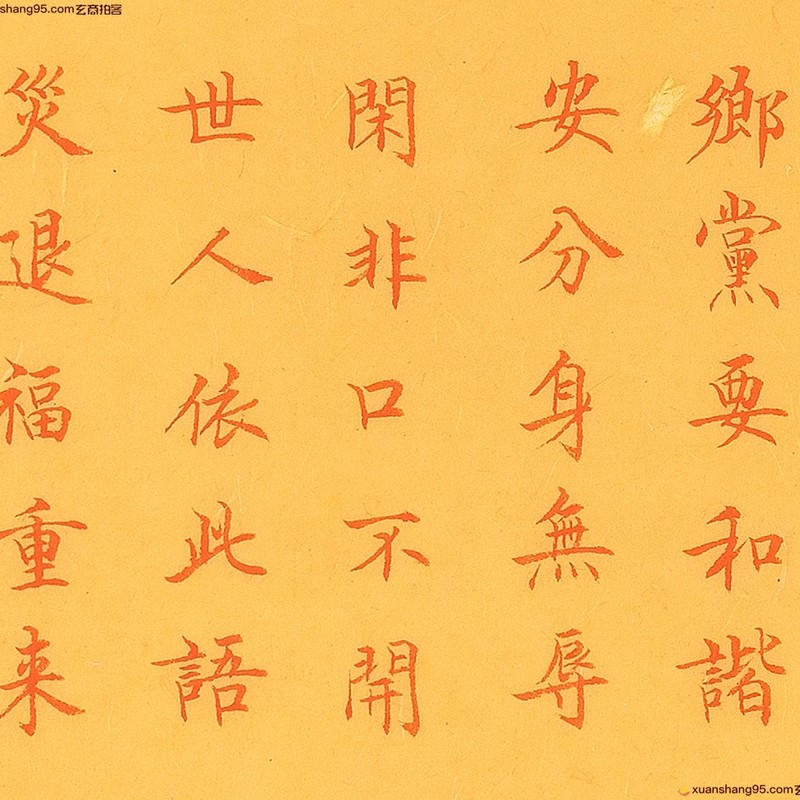 shang95.com玄商拍客
鄉黨要和諧
安分身無辱
閑非口不開
世人依此語
災退福重来
xuanshang95.com玄